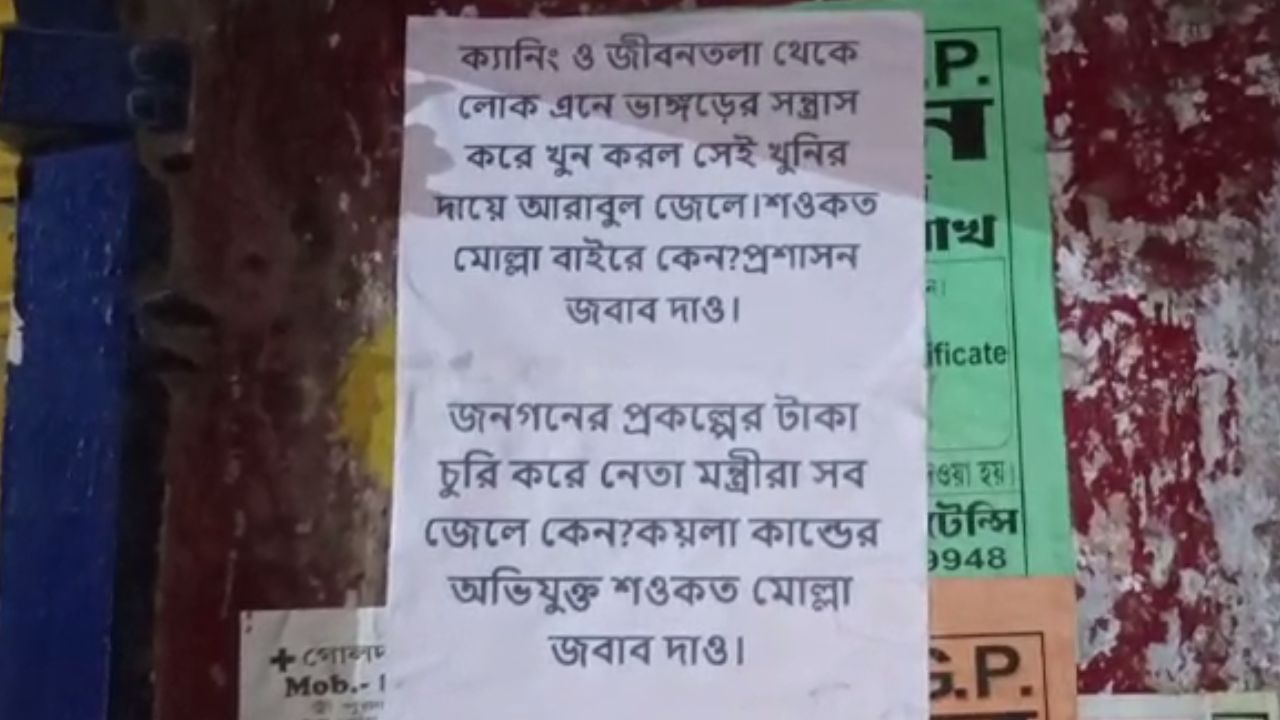 ক্যানিং ও জীবনতলা থেকে
লোক এনে ভাঙ্গড়ের সন্ত্রাস
করে খুন করল সেই খুনির
দায়ে আরাবুল জেলে।শওকত
মোল্লা বাইরে কেন?প্রশাসন
জবাব দাও।
জনগনের প্রকল্পের টাকা
চুরি করে নেতা মন্ত্রীরা সব
জেলে কেন?কয়লা কান্ডের
অভিযুক্ত শওকত মোল্লা
জবাব দাও।
.P.
ificate
হয়।
9948
G.P.
Mob.-